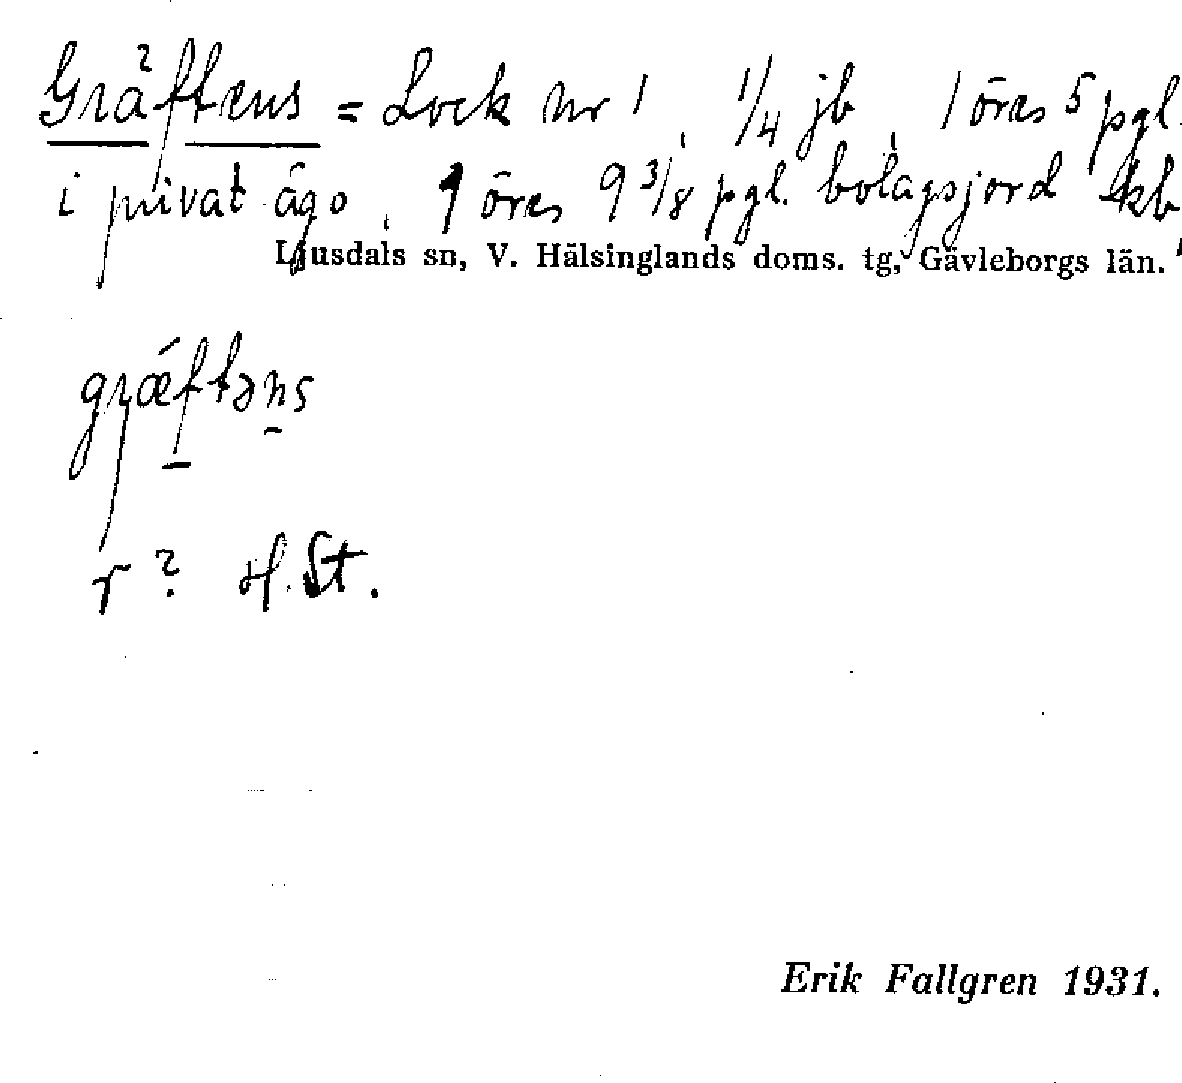 Gräftens = Lock nr 1, 1/4 jb, 1 öres 5 pgl.
i privat ägo, 1 öres 9 3/8 pgl. bolagsjord skb
Ljusdals sn, V. Hälsinglands doms. tg, Gävleborgs län.
græ´ftəns
r? H.St.
Erik Fallgren 1931.